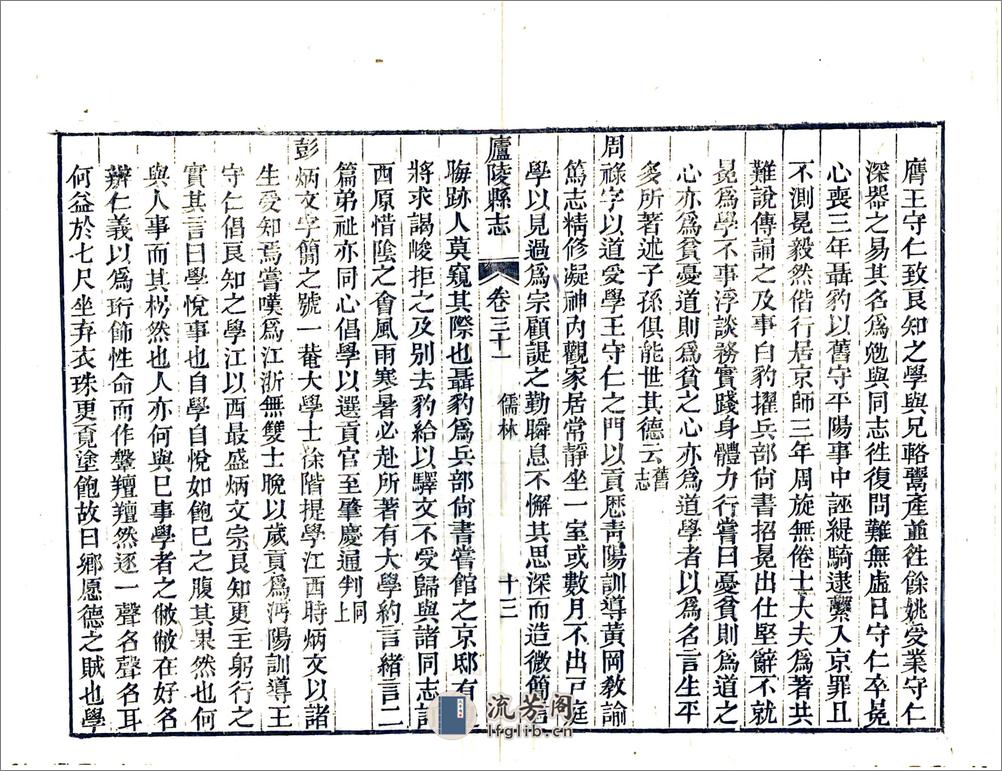 膺王守仁致良知之學與兄輅鬻產並徃餘姚受業守仁
深器之易其名爲勉與同志徃復問難無虛日守仁卒冕
心喪三年聶豹以舊守平陽事中誣緹騎逮蘩入京罪且
不測冕毅然偕行居京師三年周旋無倦士大夫爲著共
難說傳誦之及事白豹擢兵部尙書招冕出仕堅辭不就
冕爲學不事浮談務實踐身體力行嘗曰憂貧則爲道之
心亦爲貧憂道則爲貧之心亦爲道學者以爲名言生平
多所著述子孫俱能世其德云舊志
周祿字以道受學王守仁之門以貢歷靑陽訓導黃岡敎諭
篤志精修凝神內觀家居常靜坐一室或數月不出戸庭
學以見過爲宗顧諟之勤瞬息不懈其思深而造微簡
廬陵縣志 卷三十一 儒林 十三
晦跡人莫窺其際也聶豹爲兵部尙書嘗館之京邸有
將求謁峻拒之及別去豹給以驛文不受歸與諸同志
西原惜陰之會風雨寒暑必赴所著有大學約言緒言二
篇弟祉亦同心倡學以選貢官至肇慶通判同上
彭炳文字簡之號一菴大學士徐階提學江西時炳文以諸
生受知焉嘗嘆爲江浙無雙士晚以歲貢爲沔陽訓導王
守仁倡良知之學江以西最盛炳文宗良知更主躬行之
實其言曰學悅事也自學自悅如飽已之腹其果然也何
與人事而其枵然也人亦何與已事學者之敝敝在好名
辨仁義以爲珩飾性命而作鞶羶羶然逐一聲名聲名耳
何益於七尺坐弃衣珠更覓塗飽故曰鄉愿德之賊也學
流芳閣
lfglib.cn